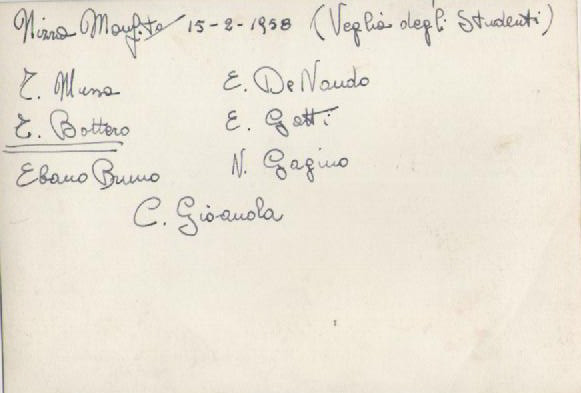 Nizza Monf.to 15-2-1958 (Veglia degli Studenti)
T. Mussa E. De Nando
T. Bottero E. Gatti
Ebano Bruno N. Gagino
C. Gioanola